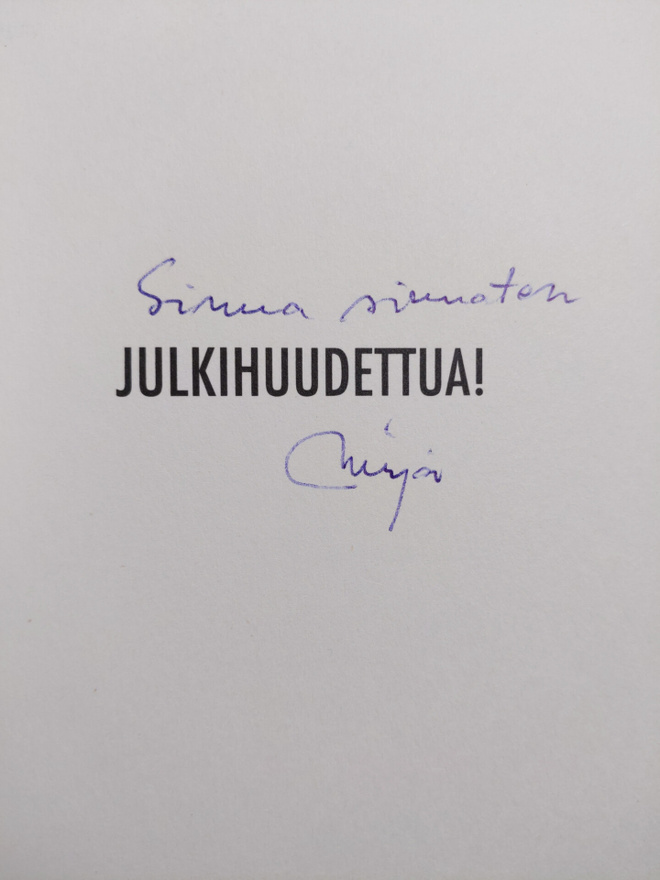 Sinua siunaten
JULKIHUUDETTUA!
Mirja